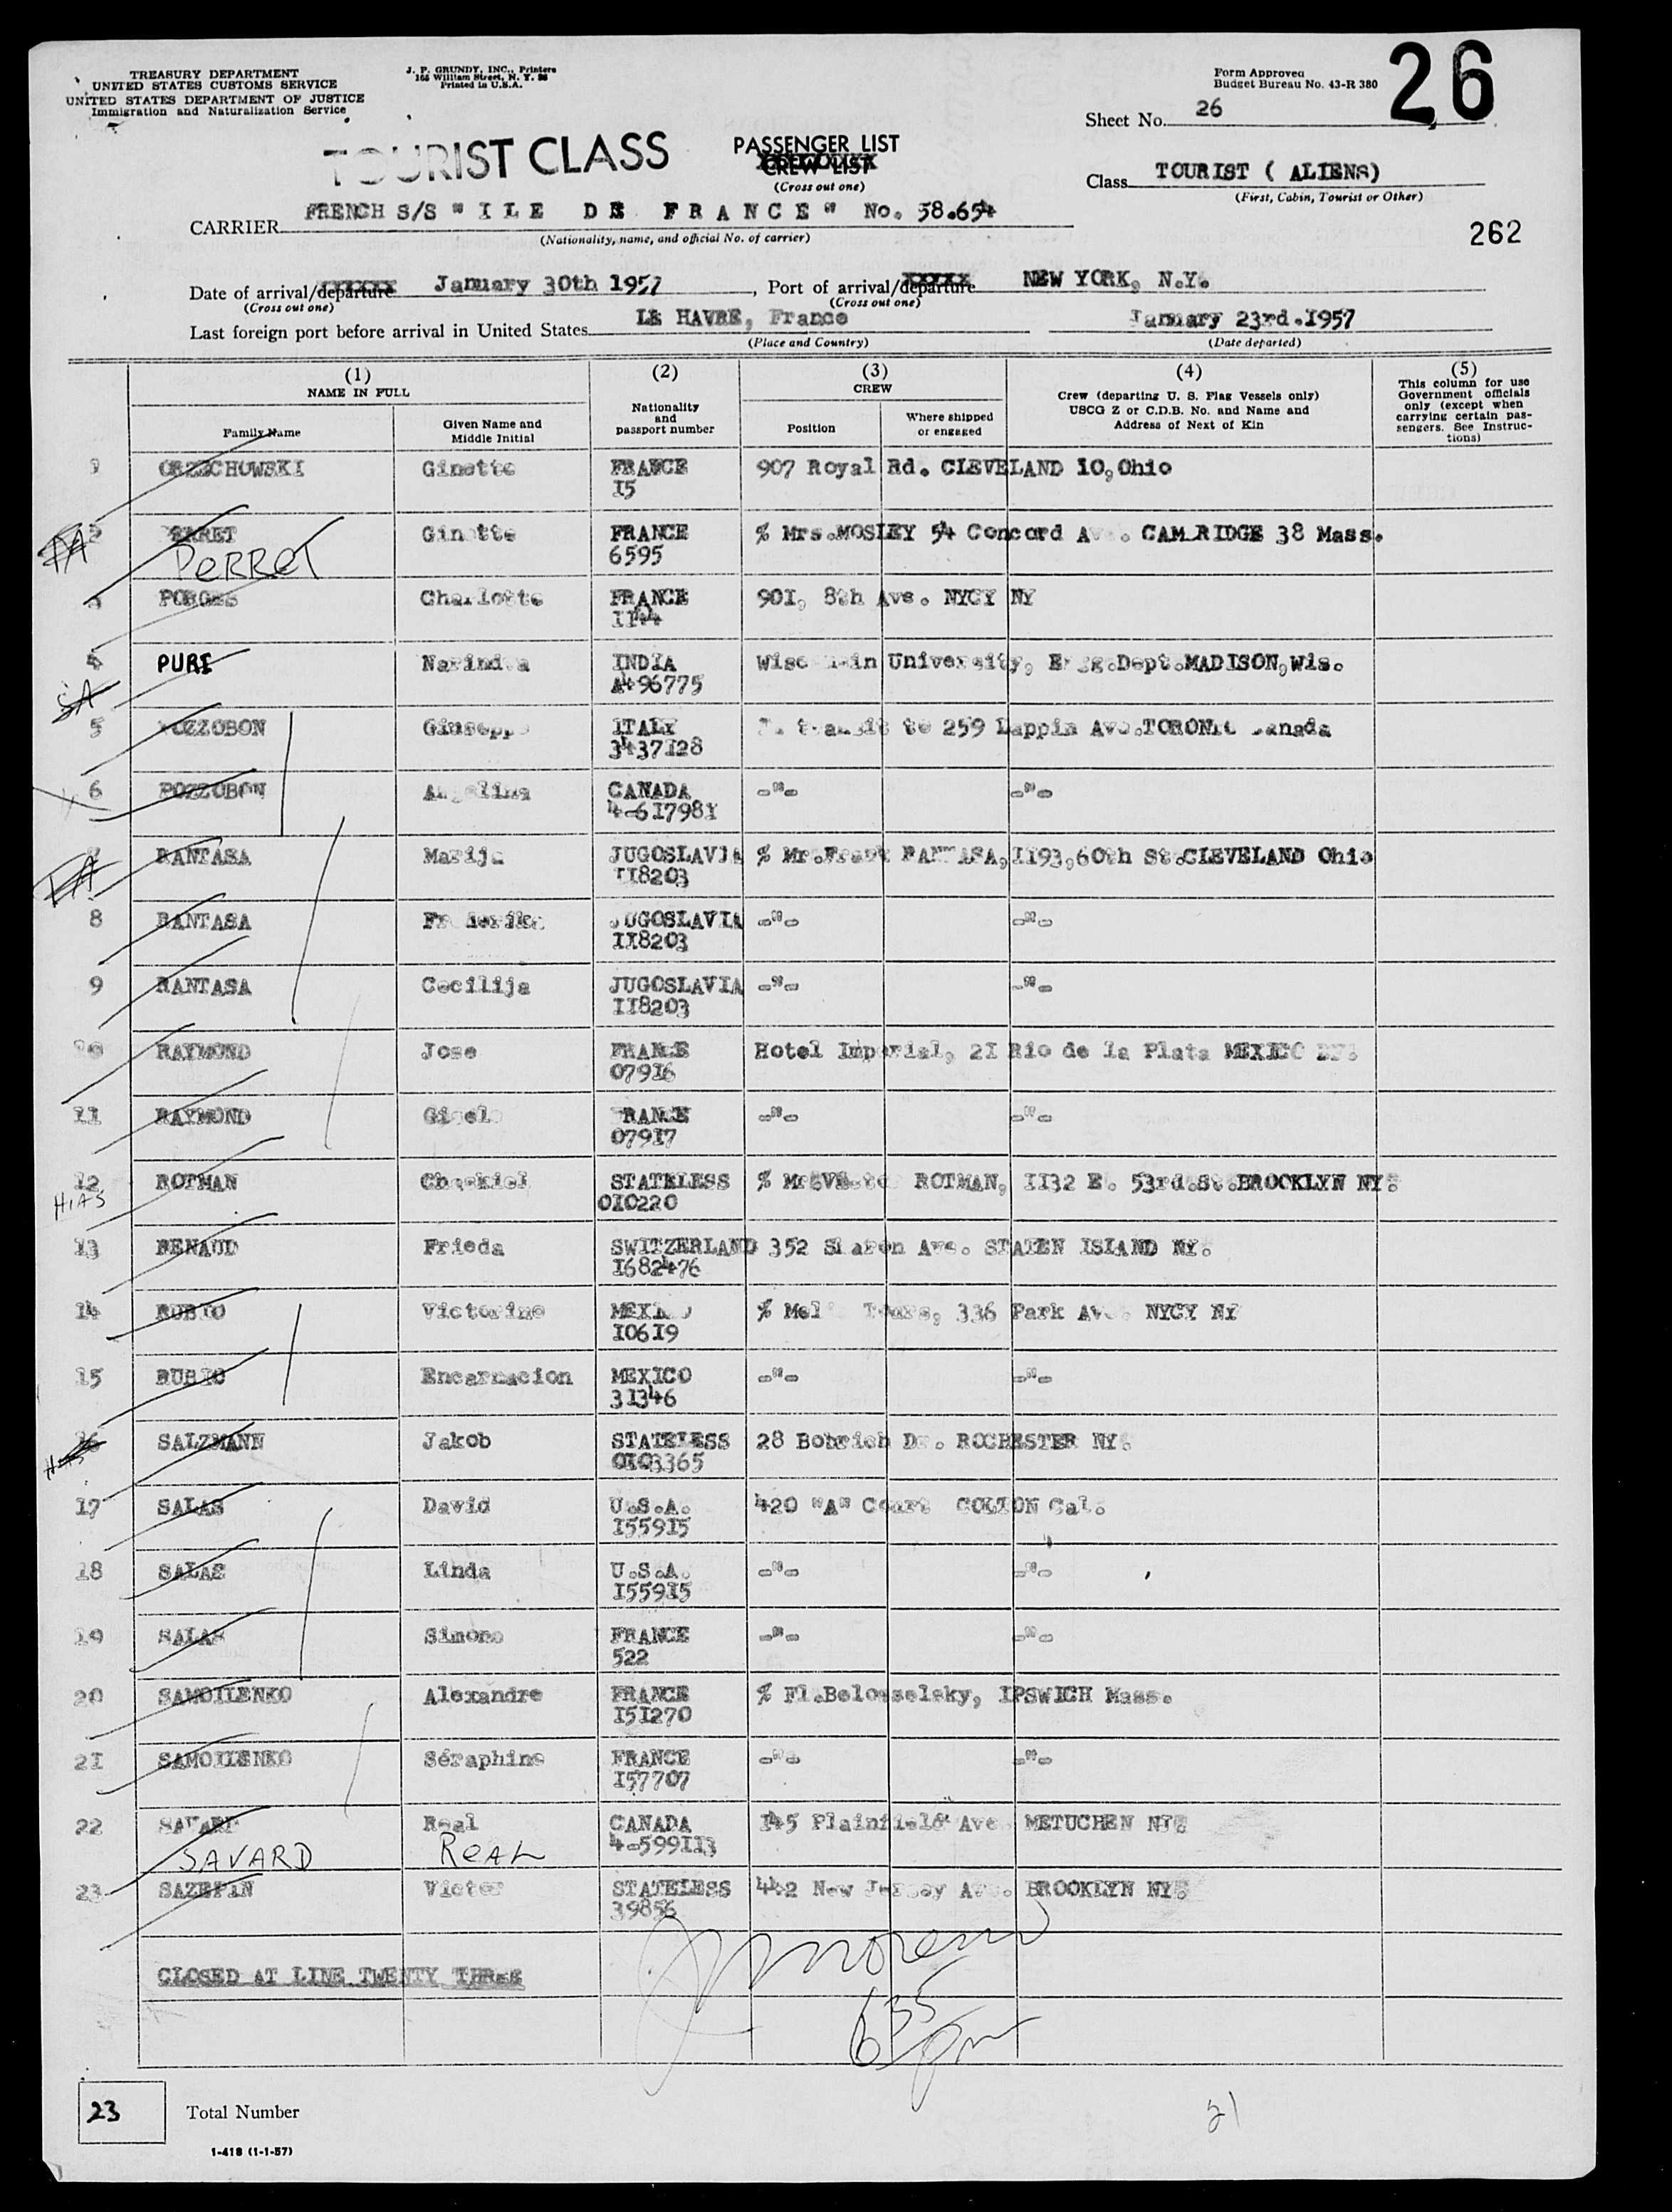 TREASURY DEPARTMENT
UNITED STATES CUSTOMS SERVICE
UNITED STATES DEPARTMENT OF JUSTICE
Immigration and Naturalization Service
J. P. GRUNDY, INC., Printers
165 William Street, N. Y. 38
Printed in U.S.A.
Form Approved
Budget Bureau No. 43-R 380
26
Sheet No. 26
TOURIST CLASS
PASSENGER LIST
CREW LIST
(Cross out one)
Class TOURIST ( ALIENS)
(First, Cabin, Tourist or Other)
CARRIER FRENCH S/S "ILE DE FRANCE" No. 58.654
(Nationality, name, and official No. of carrier)
262
Date of arrival/departure January 30th 1957, Port of arrival/departure NEW YORK, N.Y.
(Cross out one) (Cross out one)
Last foreign port before arrival in United States LE HAVRE, France January 23rd.1957
(Place and Country) (Date departed)
(1) NAME IN FULL
Family Name
Given Name and Middle Initial
(2) Nationality and passport number
(3) CREW
Position
Where shipped or engaged
(4) Crew (departing U. S. Flag Vessels only)
USCG Z or C.D.B. No. and Name and
Address of Next of Kin
(5) This column for use Government officials only (except when carrying certain passengers. See Instructions)
1 ORZECHOWSKI Ginette FRANCE 907 Royal Rd. CLEVELAND 10,Ohio
I5
2 PERRET Ginette FRANCE % Mrs.MOSLEY 54 Concord Ave. CAMBRIDGE 38 Mass.
PERRET 6595
3 PORGES Charlotte FRANCE 90I, 8th Ave. NYCY NY
II44
4 PURI Narindra INDIA Wisconsin University, Engg.Dept.MADISON,Wis.
A496775
SA
5 POZZOBON Giuseppe ITALY In transit to 259 Lappin Ave.TORONTO Canada
3437I28
6 POZZOBON Angelina CANADA -"- -"-
4-6I798I
7 RANTASA Marija JUGOSLAVIA % Mr.Frank RANTASA,II93,60th St.CLEVELAND Ohio
II8203
8 RANTASA Frederika JUGOSLAVIA -"- -"-
II8203
9 RANTASA Cecilija JUGOSLAVIA -"- -"-
II8203
10 RAYMOND Jose FRANCE Hotel Imperial, 2I Rio de la Plata MEXICO DF.
079I6
11 RAYMOND Gisele FRANCE -"- -"-
079I7
12 ROTMAN STATELESS % ROTMAN, II32 E. 53rd.St.BROOKLYN NY.
HIAS 0I0220
13 RENAUD Frieda SWITZERLAND 352 Sharon Ave. STATEN ISLAND NY.
I682476
14 RUBIO Victorino MEXICO % Tours, 336 Park Ave. NYCY NY
I06I9
15 RUBIO Encarnacion MEXICO -"- -"-
3I346
16 SALZMANN Jakob STATELESS 28 Bohrich Dr. ROCHESTER NY.
HIAS 0I03365
17 SALAS David U.S.A. 420 "A" Court COLTON Cal.
I559I5
18 SALAS Linda U.S.A. -"- -"-
I559I5
19 SALAS Simone FRANCE -"- -"-
522
20 SAMOILENKO Alexandre FRANCE % Fl.Belosselsky, IPSWICH Mass.
I5I270
2I SAMOILENKO Séraphine FRANCE -"- -"-
I57707
22 SAVARD Real CANADA I45 Plainfield Ave METUCHEN NY.
SAVARD ReAL 4-599II3
23 SAZEPIN Victor STATELESS 442 New Jersey Ave. BROOKLYN NY.
39856
CLOSED AT LINE TWENTY THREE
6 35 pm
23 Total Number
21
I-418 (1-1-57)